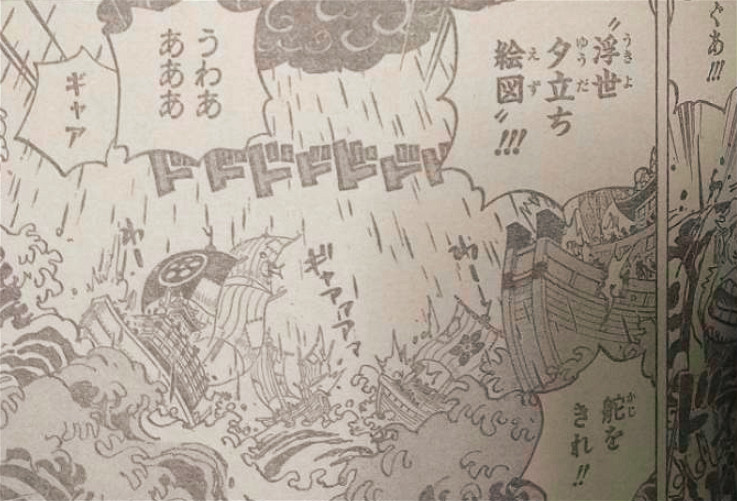 〝浮世
うきよ
夕立ち
ゆうだ
絵図〟!!!
えず
うわあ
あああ
ギャア
ドドドドドド
わー
ギャアァァァ
わー
舵を
かじ
きれ!!
ぐあ!!!